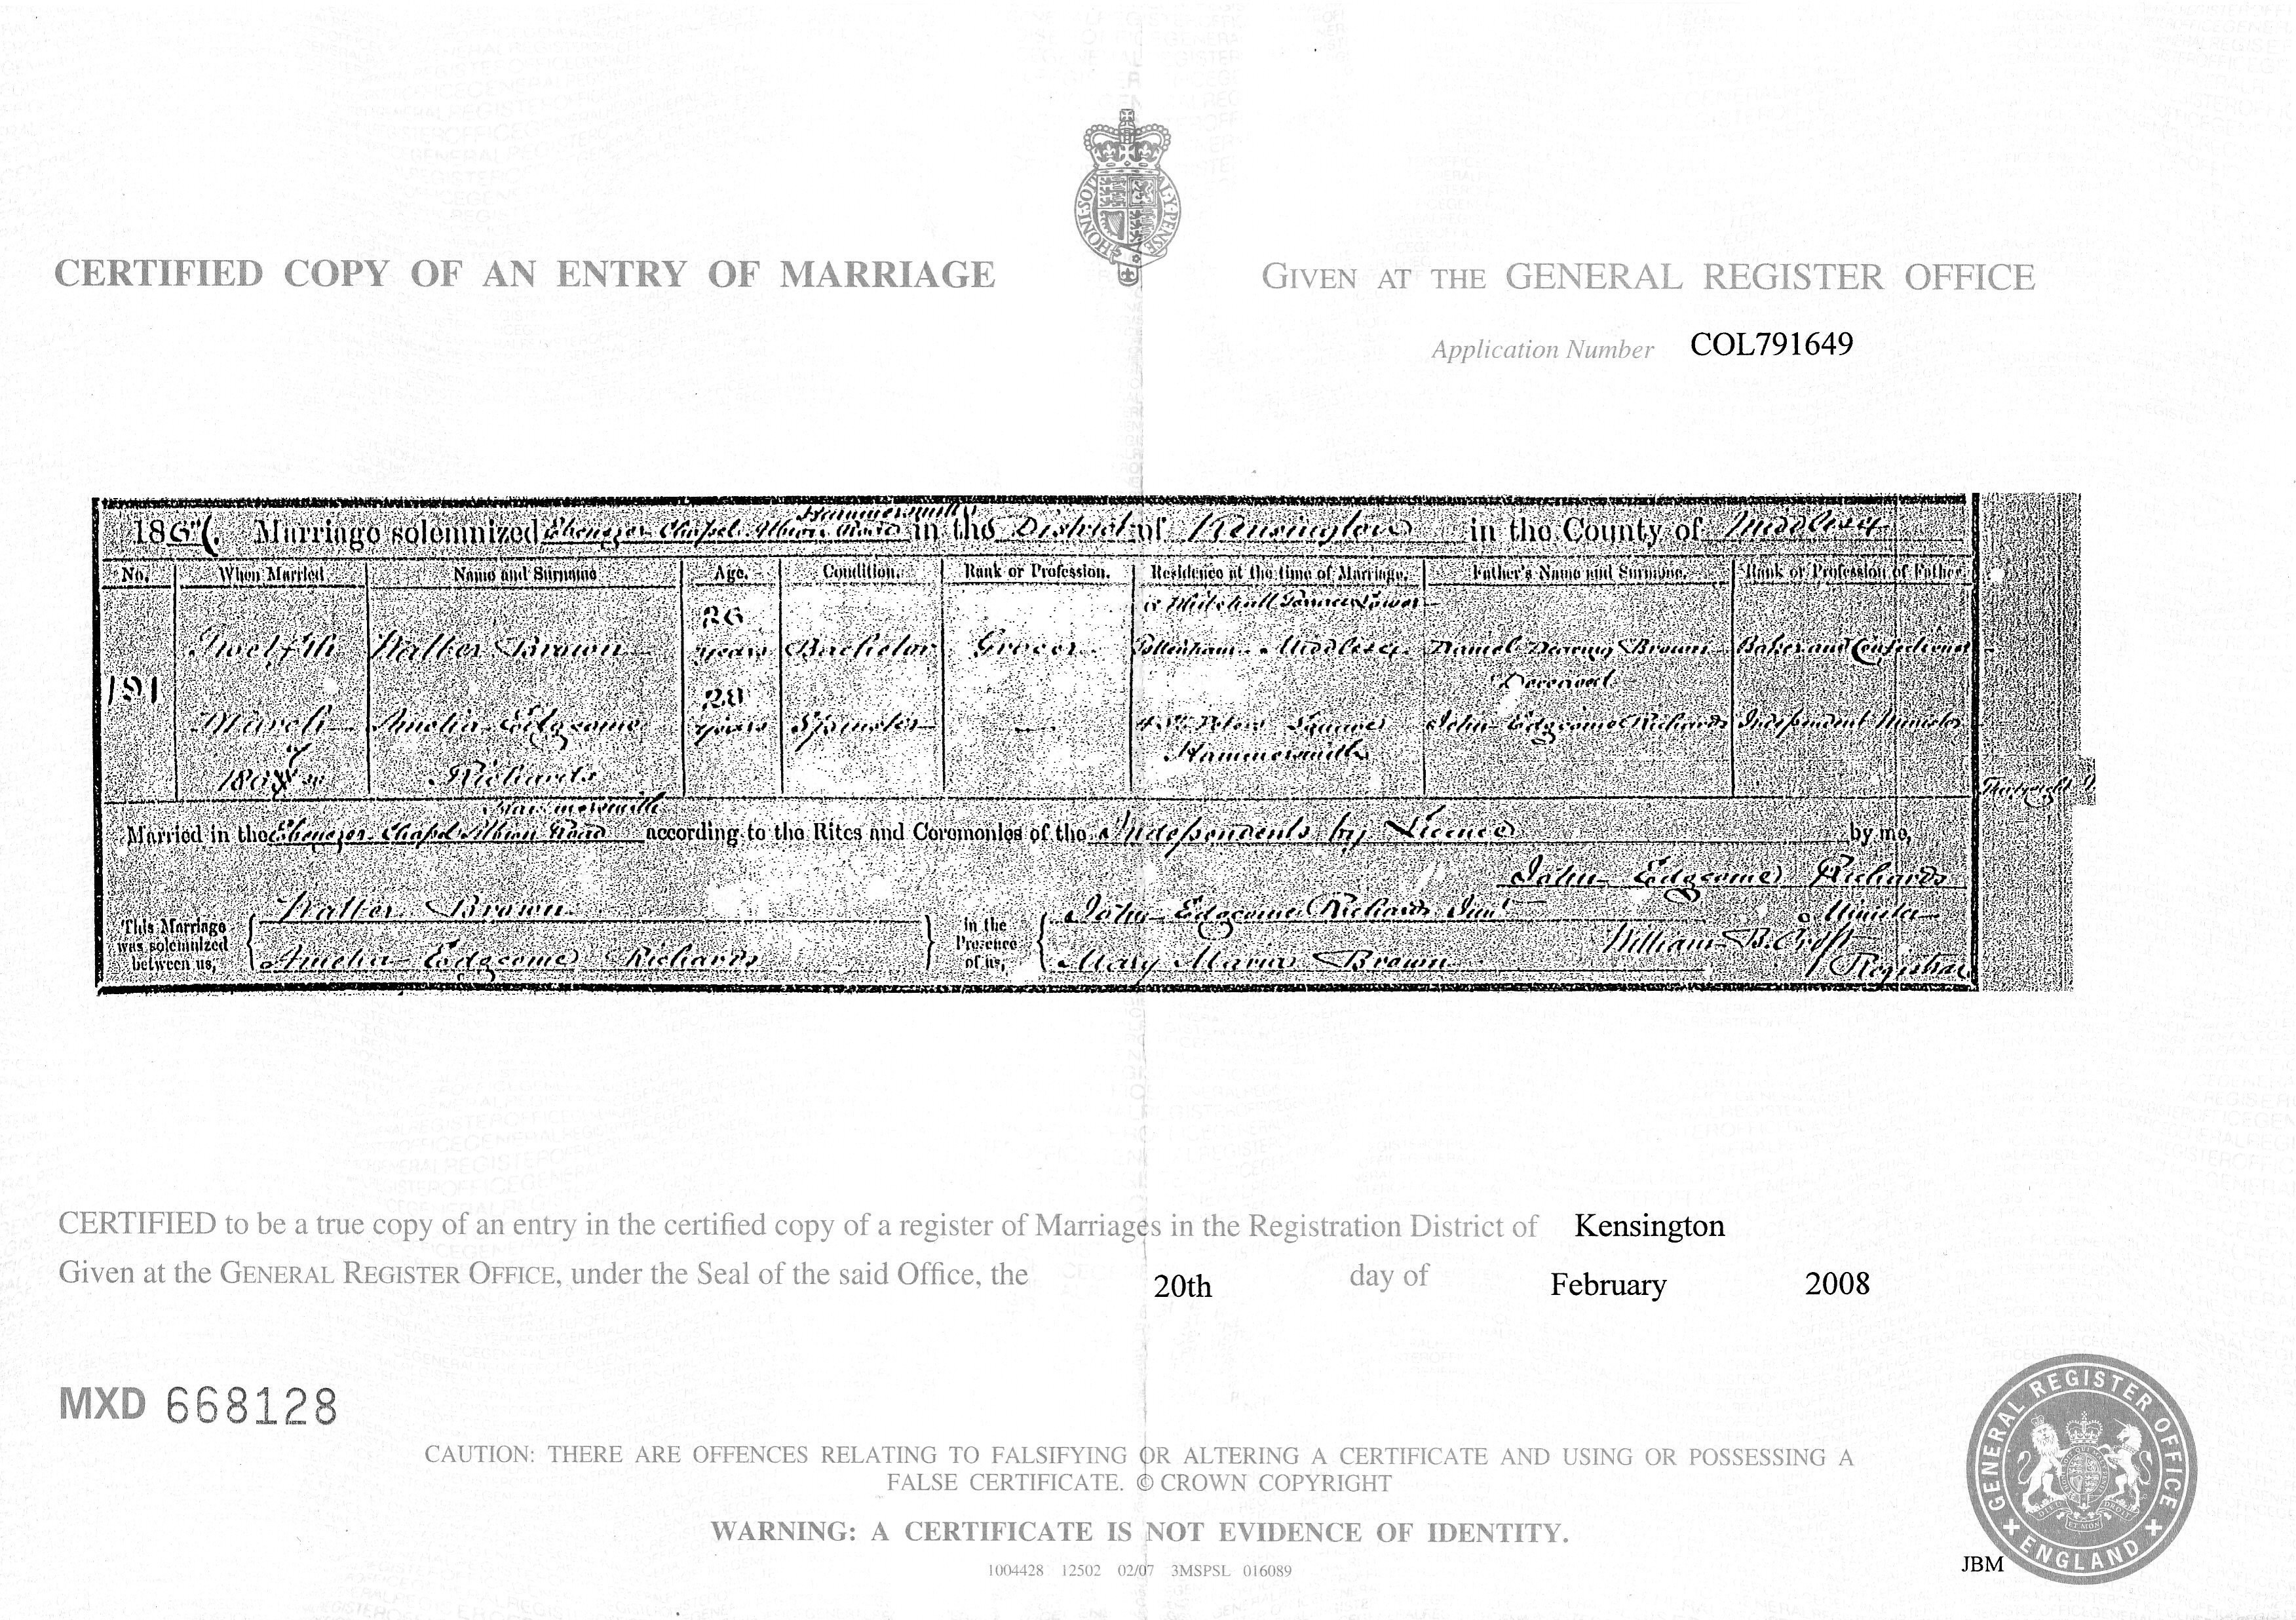 CERTIFIED COPY OF AN ENTRY OF MARRIAGE
GIVEN AT THE GENERAL REGISTER OFFICE
Application Number COL791649
Hammersmith
Marriage solemnized Ebenezer Chapel Albion Road in the District of Kensington in the County of Middlesex
No. When Married Name and Surname Age. Condition. Rank or Profession. Residence at the time of Marriage. Father's Name and Surname. Rank or Profession of Father
26 Whitehall Terrace Lower
Twelfth Walter Brown years Bachelor Grocer Tottenham Middlesex Daniel Dearing Brown Baker and Confectioner
191 28 Deceased
March Amelia Edgcome years Spinster 4 St Peters Square John Edgcome Richards Independent Minister
Hammersmith
Richards
Hammersmith
Married in the Ebenezer Chapel Albion Road according to the Rites and Ceremonies of the Independents by Licence by me,
John Edgcome Richards
Walter Brown John Edgcome Richards Junr Minister
This Marriage was solemnized between us, In the Presence of us, William B. Croft
Amelia Edgcome Richards Mary Maria Brown Registrar
CERTIFIED to be a true copy of an entry in the certified copy of a register of Marriages in the Registration District of Kensington
Given at the GENERAL REGISTER OFFICE, under the Seal of the said Office, the 20th day of February 2008
MXD 668128
CAUTION: THERE ARE OFFENCES RELATING TO FALSIFYING OR ALTERING A CERTIFICATE AND USING OR POSSESSING A
FALSE CERTIFICATE. © CROWN COPYRIGHT
WARNING: A CERTIFICATE IS NOT EVIDENCE OF IDENTITY.
1004428 12502 02/07 3MSPSL 016089
JBM
GENERAL REGISTER OFFICE
ENGLAND